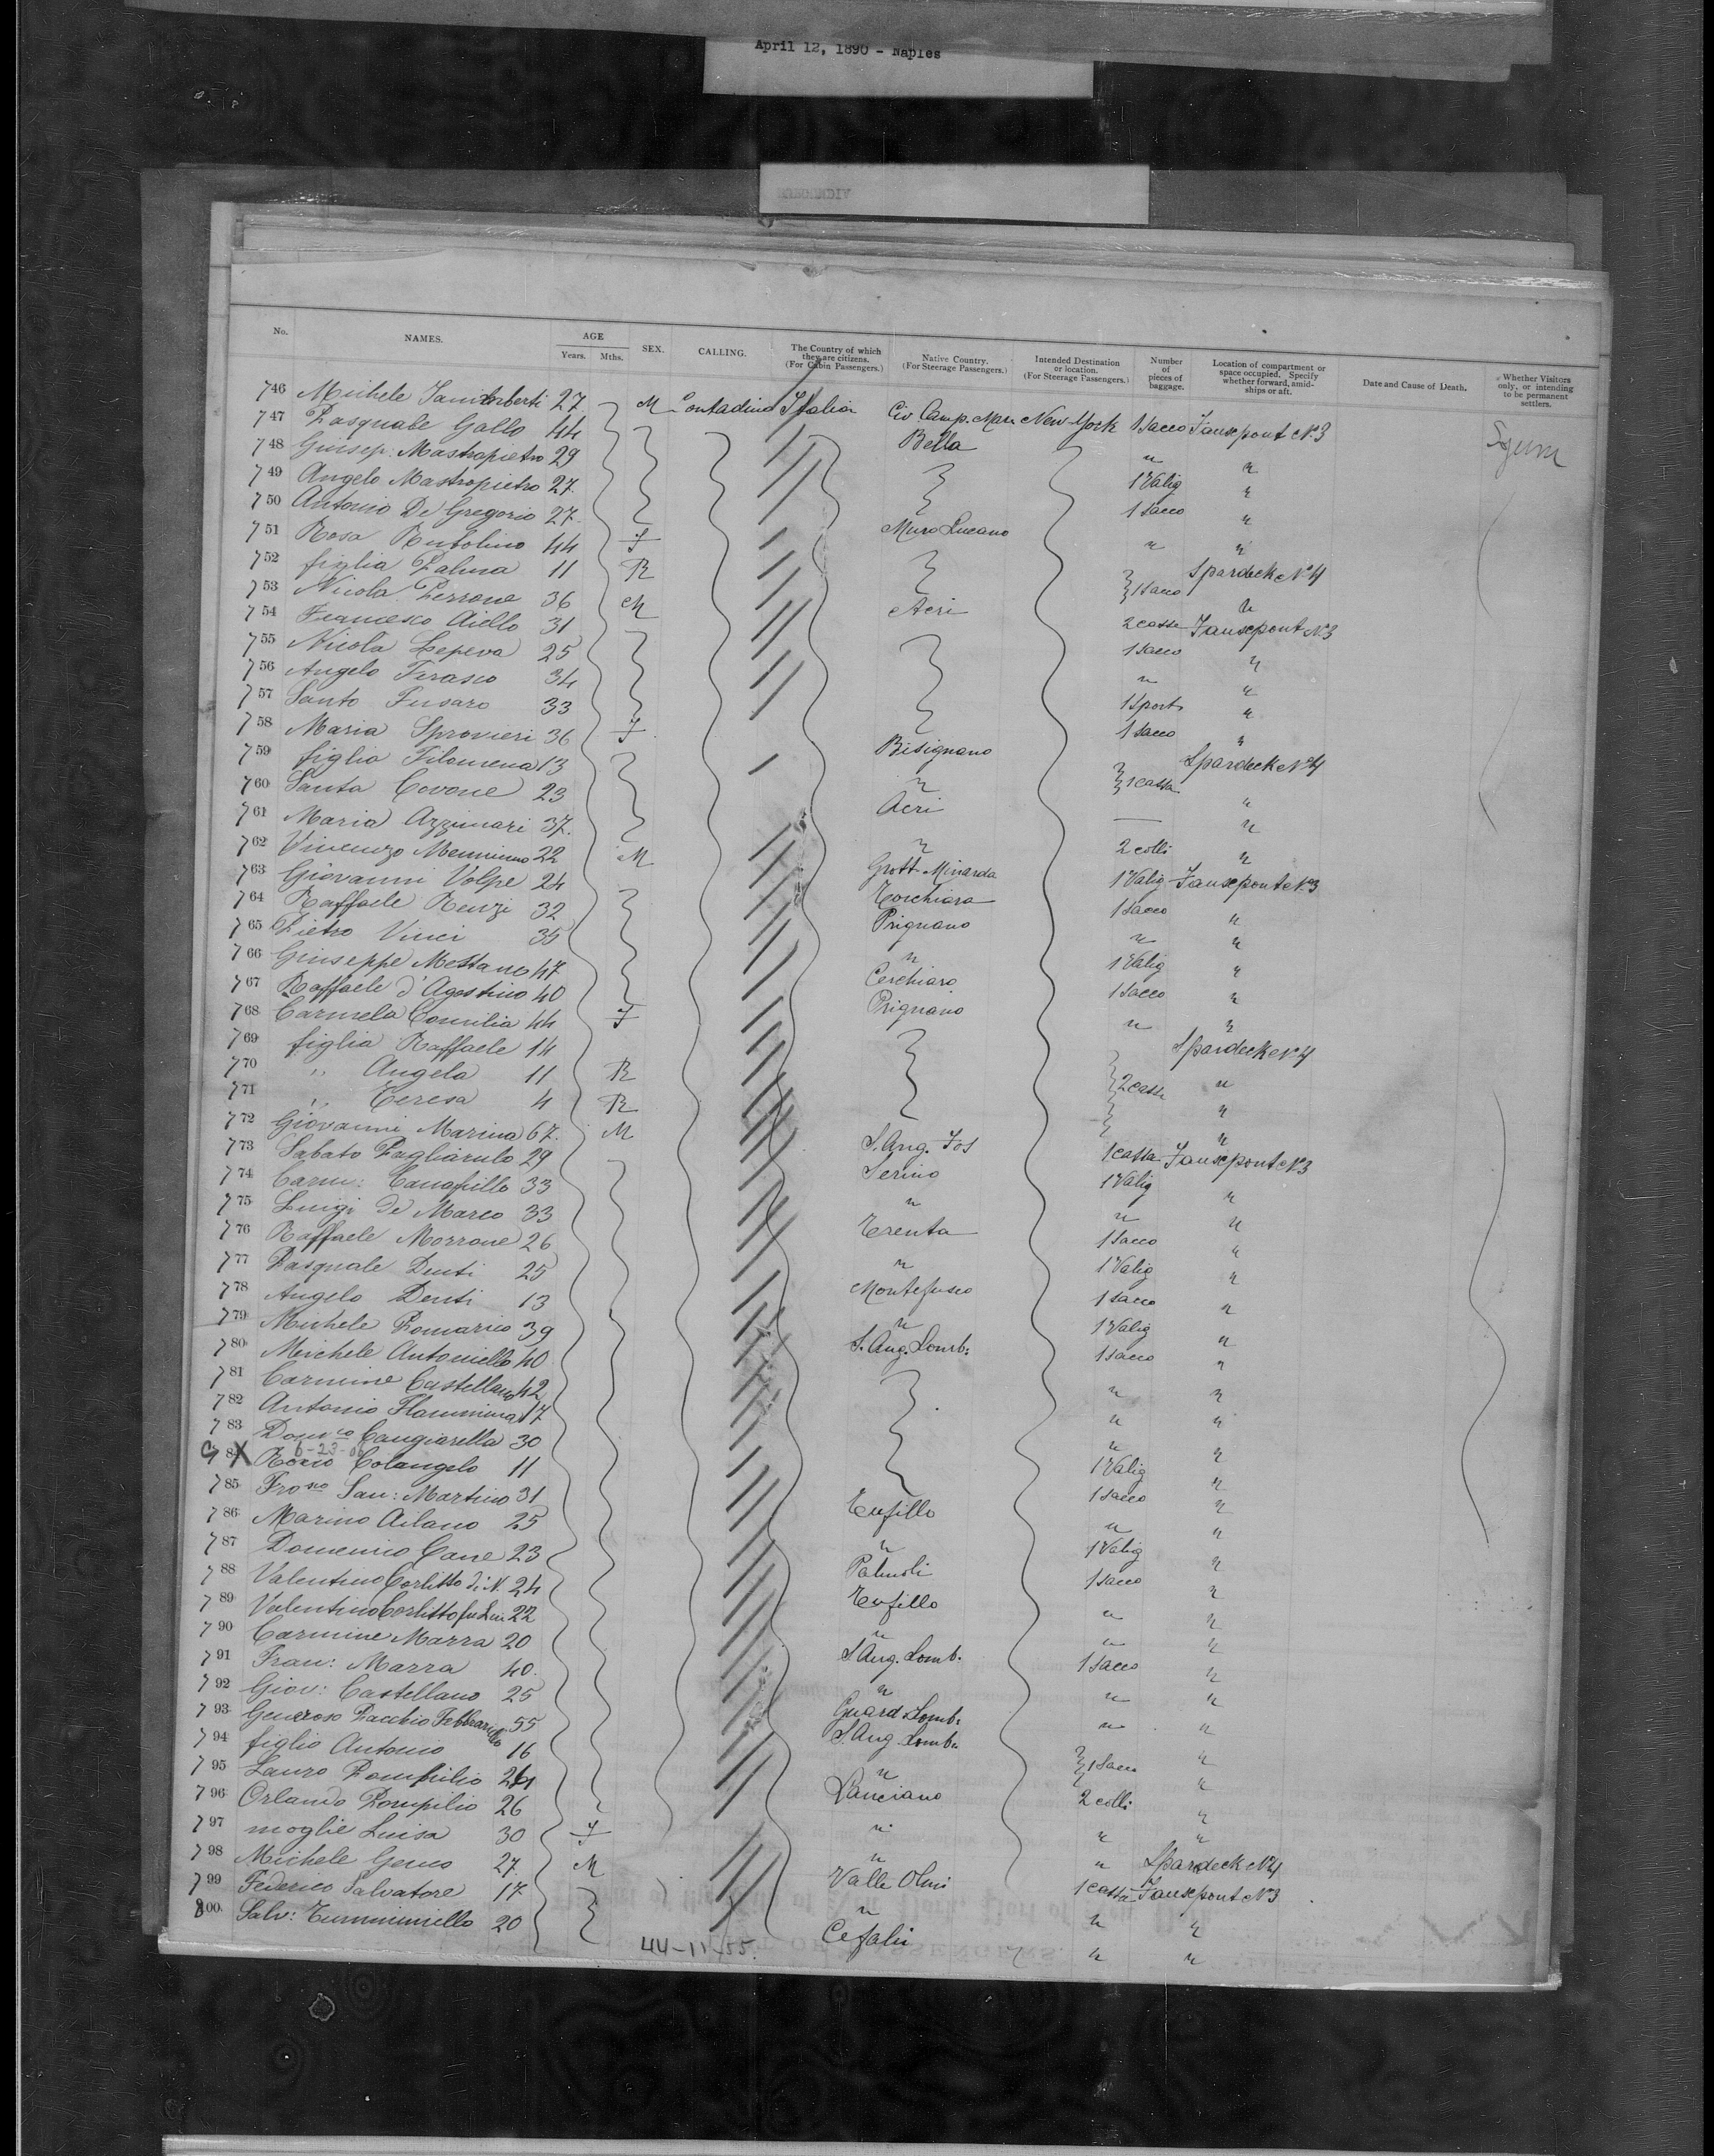 April 12, 1890 - Naples
No. NAMES. AGE Years. Mths. SEX. CALLING. The Country of which they are citizens. (For Cabin Passengers.) Native Country. (For Steerage Passengers.) Intended Destination or location. (For Steerage Passengers.) Number of pieces of baggage. Location of compartment or space occupied. Specify whether forward, amidships or aft. Date and Cause of Death. Whether Visitors only, or intending to be permanent settlers.
746 Michele 27 M Contadino Italia Civ. Camp. New-York 1 Sacco N. 3
747 Pasquale Gallo 44 Bella "
748 Giusep: Mastropietro 29 1 Valig "
749 Angelo Mastropietro 27 1 Sacco "
750 Antonio De Gregorio 27 Muro Lucano " "
751 Rosa Rufolino 44 F Spardeck N. 4
752 figlia Palma 11 R 1 Sacco "
753 Nicola Perrone 36 M Acri 2 casse N. 3
754 Francesco Aiello 31 1 Sacco "
755 Nicola 25 " "
756 Angelo 34 1 Sport "
757 Santo Fusaro 33 1 Sacco "
758 Maria Sprovieri 36 F Bisignano Spardeck N. 4
759 figlia Filomena 13 " 1 cassa "
760 Santa Covone 23 Acri — "
761 Maria Azzinari 37 " 2 colli "
762 Vincenzo 22 M Grott. Minarda 1 Valig N. 3
763 Giovanni Volpe 24 Torchiara 1 Sacco "
764 Raffaele Renzi 32 Prignano " "
765 Pietro Vinci 35 " 1 Valig "
766 Giuseppe 47 Cerchiara 1 Sacco "
767 Raffaele d'Agostino 40 Prignano " "
768 Carmela Comilia 44 F Spardeck N. 4
769 figlia Raffaele 14 "
770 " Angela 11 R 2 casse "
771 " Teresa 4 R "
772 Giovanni Marina 67 M S. Ang. 1 cassa N. 3
773 Sabato Pagliarulo 29 Serino 1 Valig "
774 Carm: 33 " " "
775 Luigi De Marco 33 Trenta 1 Sacco "
776 Raffaele Morrone 26 " 1 Valig "
777 Pasquale 25 Montefusco 1 Sacco "
778 Angelo 13 " 1 Valig "
779 Michele Pomarico 39 S. Ang. Lomb: 1 Sacco "
780 Michele Antoniello 40 " "
781 Carmine Castellano 42 " "
782 Antonio Flammina 17 " "
783 Domco Cangiarella 30 1 Valig "
X 84 Rocco Colangelo 11 1 Sacco "
785 San: Martino 31 Tufillo " "
786 Marino 25 " 1 Valig "
787 Domenico Cane 23 Palmoli 1 Sacco "
788 Valentino Corlitto di N. 24 Tufillo " "
789 Valentino Corlitto fu 22 " " "
790 Carmine Marra 20 S. Ang. Lomb. 1 Sacco "
791 Fran: Marra 40 " " "
792 Giov: Castellano 25 Guard. Lomb. " "
793 Generoso 55 S. Ang. Lomb. "
794 figlio Antonio 16 " 1 Sacco "
795 Lauro Pompilio 24 Lanciano 2 colli "
796 Orlando Pompilio 26 " " "
797 moglie Luisa 30 F " " Spardeck N. 4
798 Michele 27 M Valle Olmi 1 cassa N. 3
799 Federico Salvatore 17 " " "
800 Salv: Tumminiello 20 Cefalù " "
44-11-55.